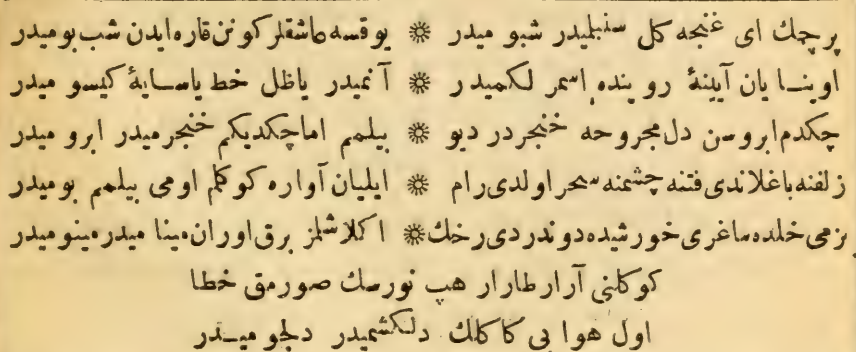 پرچمك ای غنجه كل سنبلیدر شبو میدر ❊ یوقسه عاشقلر كونن قاره ایدن شب بو میدر
اوینا یان آیینهٔ رو ینده اسمر لكمیدر ❊ آ نمیدر یاظل خط یاسایهٔ كیسو میدر
چكدم ابروسن دل مجروحه خنجردر دیو ❊ بیلمم اماچكدیكم خنجرمیدر ابرو میدر
زلفنه باغلاندی فتنه چشمنه سحر اولدی رام ❊ ایلیان آواره كوكلم اومی بیلمم بومیدر
بزمی خلده ساغری خورشیده دوندردی رخك ❊ اكلاشلمز برق اوران مینا میدر مینو میدر
كوكلنی آرار طارار هب نورسك صورمق خطا
اول هوا یی كاكلك دلكشمیدر دلجو میدر